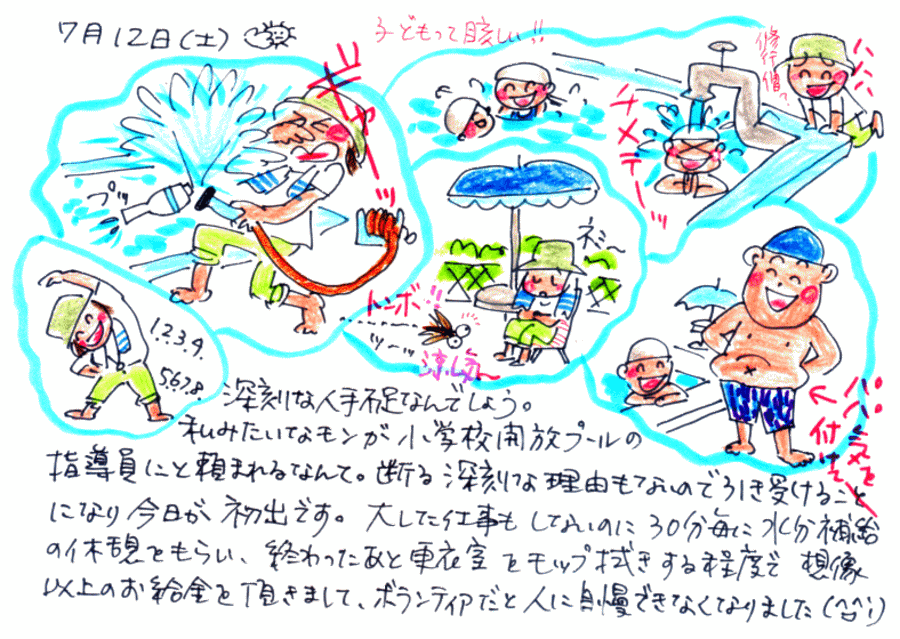 7月12日(土)
子どもって眩しい!!
修行僧っ
ハハハ
ギャーッ
ブッ
チメテーッ
ネミ〜
トンボ!!
ツーッ
涼し気〜
1.2.3.4.
5.6.7.8.
パパ気を付けて
深刻な人手不足なんでしょう。
私みたいなモンが小学校開放プールの
指導員にと頼まれるなんて。断る深刻な理由もないので引き受けること
になり今日が初出です。大した仕事もしてないのに30分毎に水分補給
の休憩をもらい、終わったあと更衣室をモップ拭きする程度で想像
以上のお給金を頂きまして、ボランティアだと人に自慢できなくなりました(^^;)